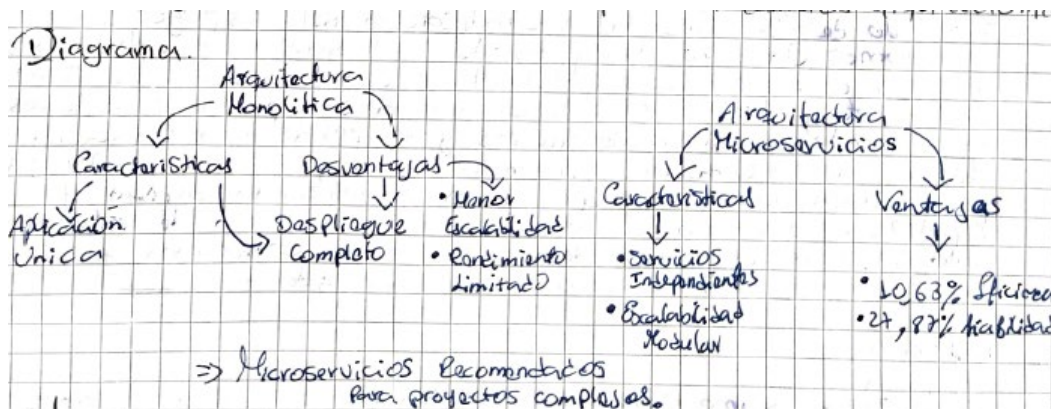 Diagrama.
Arquitectura
Monolitica
Características
Desventajas
Aplicación
Única
Despliegue
Completo
• Menor
Escalabilidad
• Rendimiento
Limitado
Arquitectura
Microservicios
Características
Ventajas
• Servicios
Independientes
• Escalabilidad
Modular
• 10,63%
• 27,87% fiabilidad
=> Microservicios Recomendados
Para proyectos complejos.